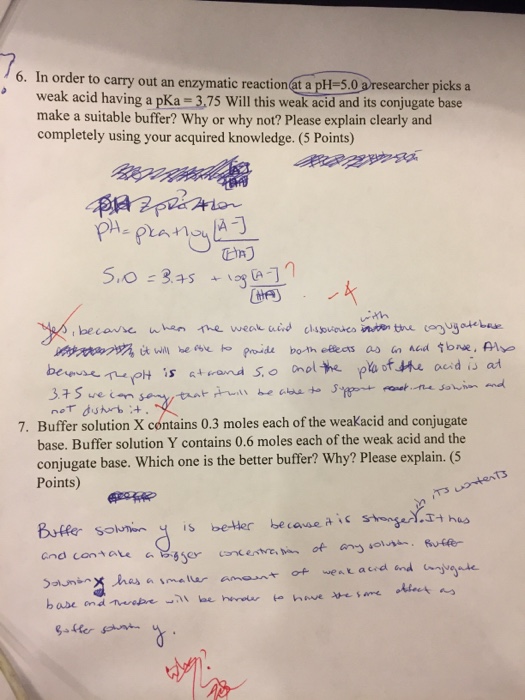 ?
6. In order to carry out an enzymatic reaction at a pH=5.0 a researcher picks a
weak acid having a pKa = 3.75 Will this weak acid and its conjugate base
make a suitable buffer? Why or why not? Please explain clearly and
completely using your acquired knowledge. (5 Points)
pH = pka + log [A-]
[HA]
5.0 = 3.75 + log [A-] ?
[HA]
-4
Yes, because when the weak acid with the conjugate base
it will be able to provide both effects as an acid & base. Also
because the pH is at around 5.0 and the pka of the acid is at
3.75 we can say that it will be able to support the solution and
not disturb it.
7. Buffer solution X contains 0.3 moles each of the weaKacid and conjugate
base. Buffer solution Y contains 0.6 moles each of the weak acid and the
conjugate base. Which one is the better buffer? Why? Please explain. (5
Points)
Buffer solution y is better because it is stronger in its contents. It has
and contain a bigger concentration of any solution. Buffer
solution x has a smaller amount of weak acid and conjugate
base and therefore will be harder to have the same affect as
Buffer solution y.
why?